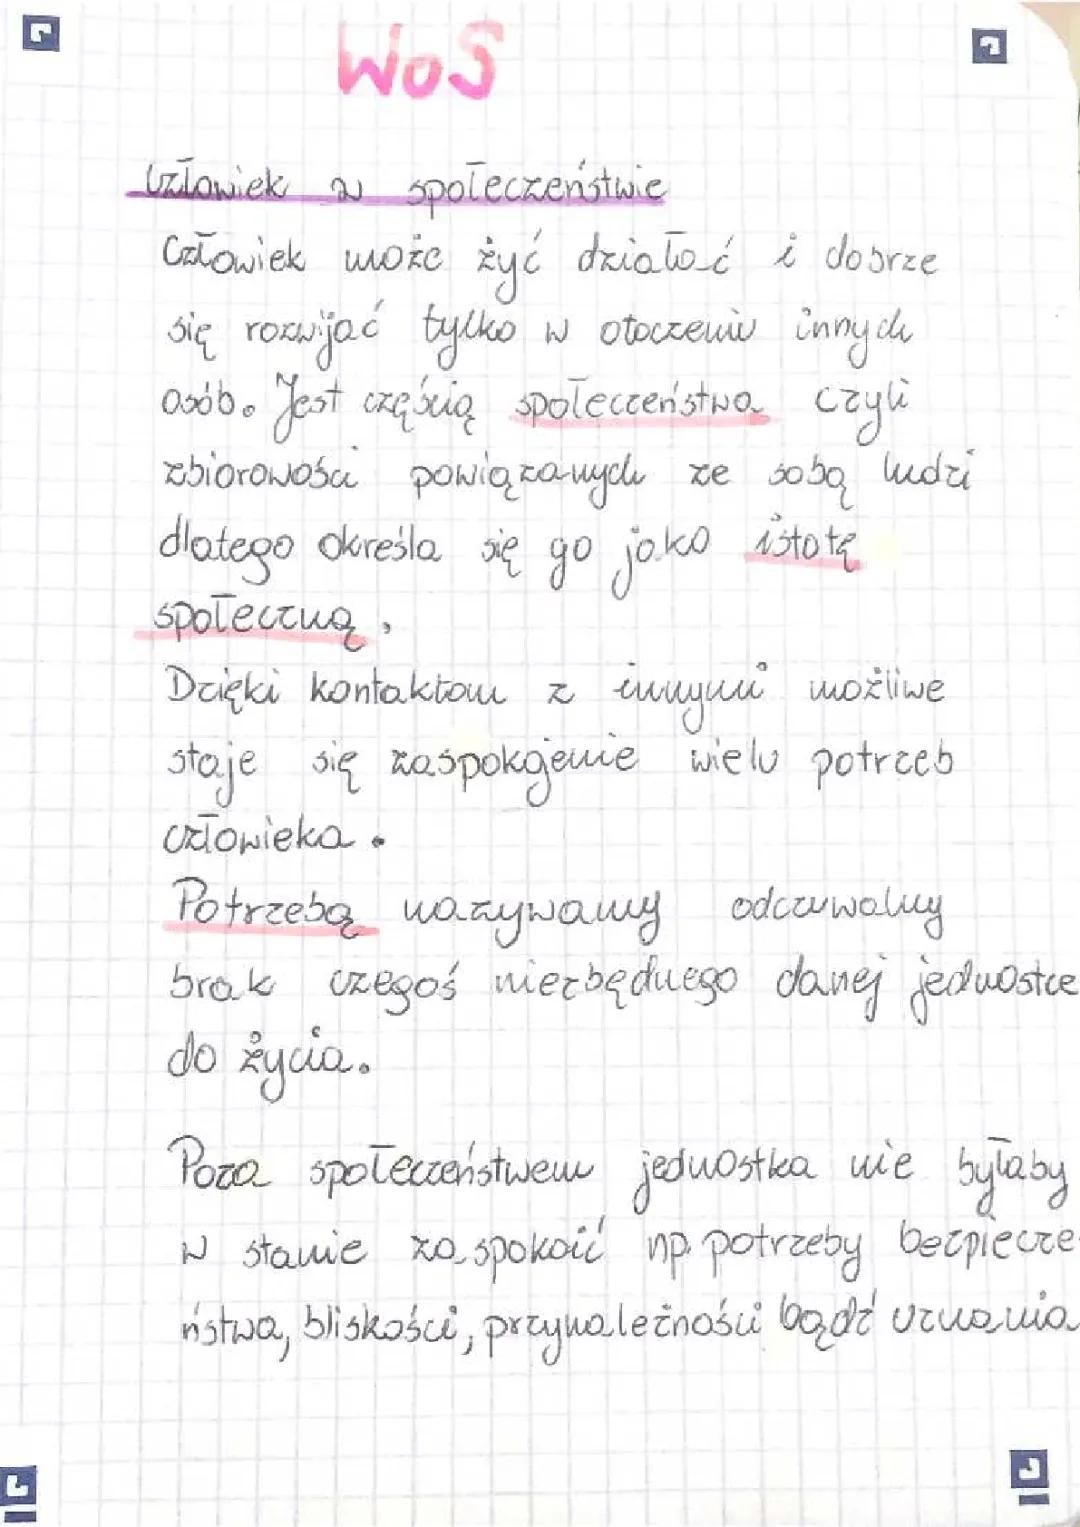 WoS
Człowiek w społeczeństwie
Człowiek może żyć działać i dobrze
się rozwijać tylko w otoczeniu innych
osób. Jest częścią społeczeństwa czyli
zbiorowości powiązanych ze sobą ludzi
dlatego określa się go jako istotę
społeczną.
Dzięki kontaktom z innymi możliwe
staje się zaspokojenie wielu potrzeb
człowieka.
Potrzebą nazywamy odczuwalny
brak czegoś niezbędnego danej jednostce
do życia.
Poza społeczeństwem jednostka nie byłaby
w stanie zaspokoić np. potrzeby bezpiecze-
ństwa, bliskości, przynależności bądź uznania